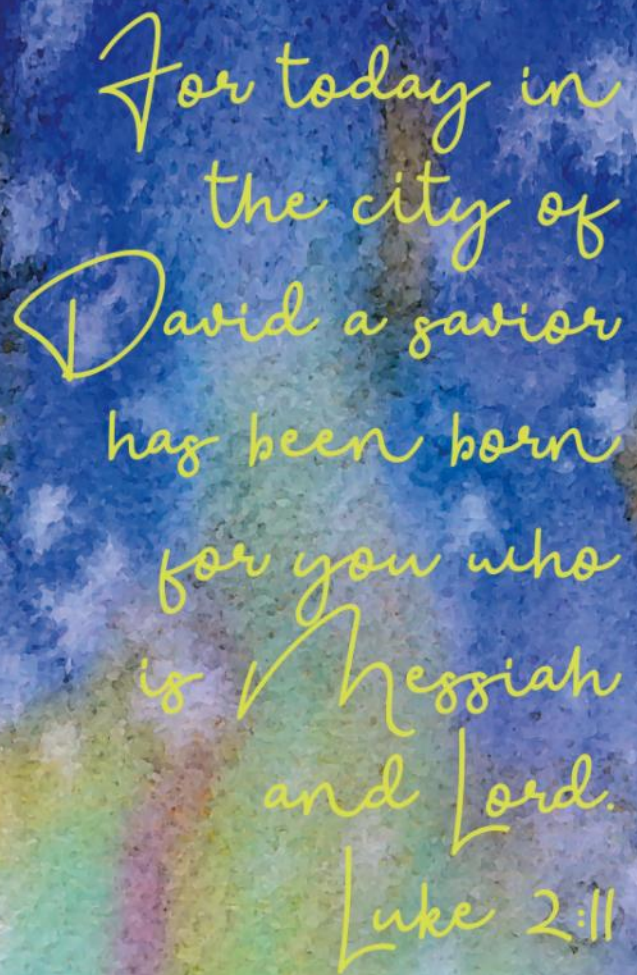 For today in
the city of
David a savior
has been born
for you who
is Messiah
and Lord.
Luke 2:11